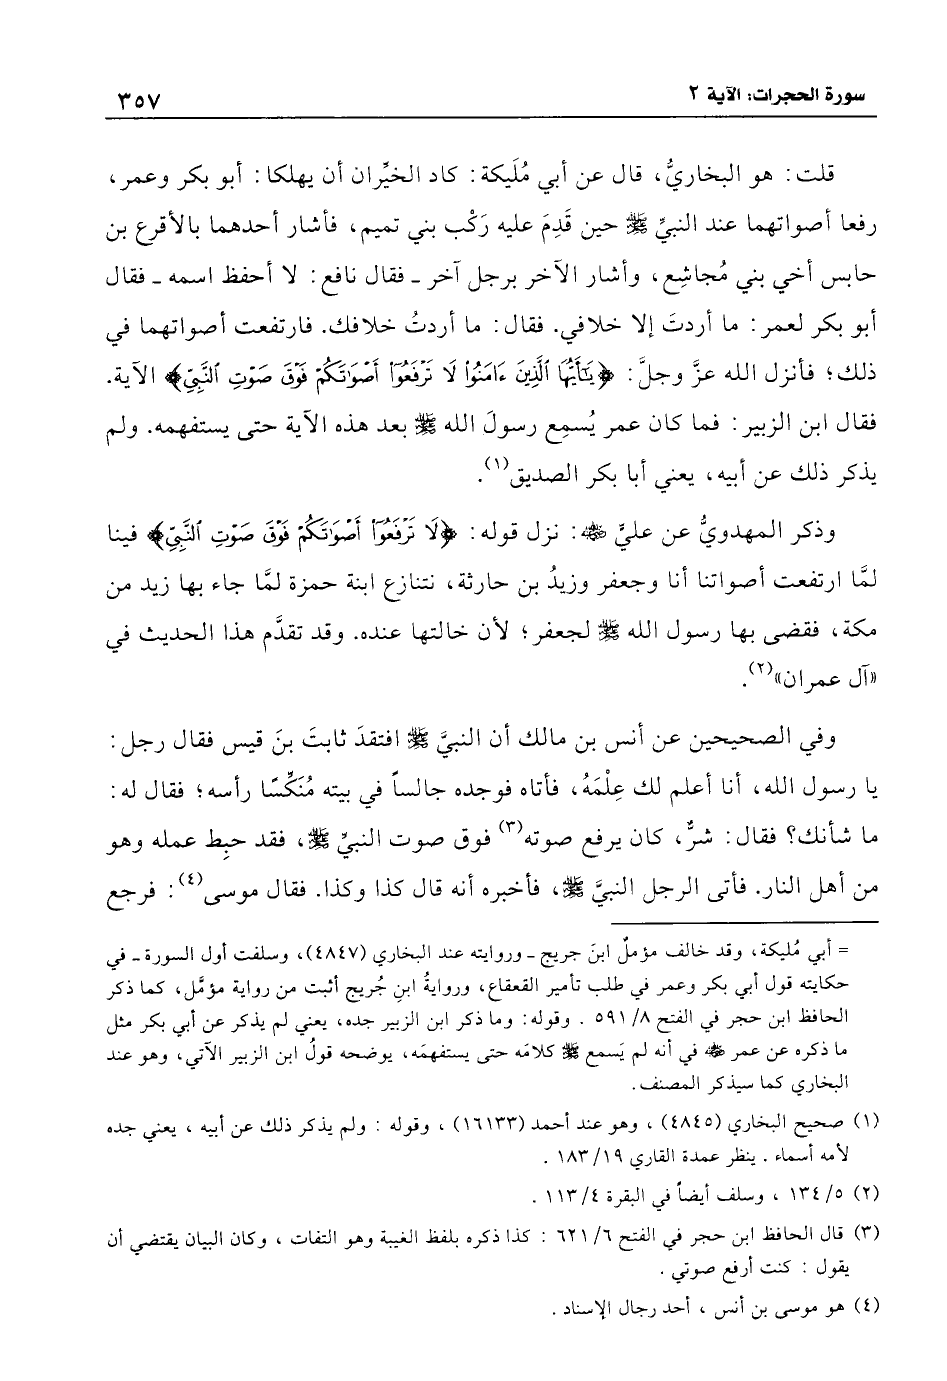 سورة الحجرات: الآية ٢
٣٥٧
قلت: هو البخاريُّ، قال عن أبي مُلَيكة: كاد الخيِّران أن يهلكا: أبو بكر وعمر،
رفعا أصواتهما عند النبيِّ ﷺ حين قَدِمَ عليه رَكْب بني تميم، فأشار أحدهما بالأقرع بن
حابس أخي بني مُجاشِع، وأشار الآخر برجل آخر ـ فقال نافع: لا أحفظ اسمه ـ فقال
أبو بكر لعمر: ما أردتَ إلا خلافي. فقال: ما أردتُ خلافك. فارتفعت أصواتهما في
ذلك؛ فأنزل الله عزَّ وجلَّ: ﴿يَٰٓأَيُّهَا ٱلَّذِينَ ءَامَنُوا۟ لَا تَرْفَعُوٓا۟ أَصْوَٰتَكُمْ فَوْقَ صَوْتِ ٱلنَّبِيِّ﴾ الآية.
فقال ابن الزبير: فما كان عمر يُسمِع رسولَ الله ﷺ بعد هذه الآية حتى يستفهمه. ولم
يذكر ذلك عن أبيه، يعني أبا بكر الصديق(١).
وذكر المهدويُّ عن عليٍّ ﵁: نزل قوله: ﴿لَا تَرْفَعُوٓا۟ أَصْوَٰتَكُمْ فَوْقَ صَوْتِ ٱلنَّبِيِّ﴾ فينا
لمَّا ارتفعت أصواتنا أنا وجعفر وزيدُ بن حارثة، نتنازع ابنة حمزة لمَّا جاء بها زيد من
مكة، فقضى بها رسول الله ﷺ لجعفر؛ لأن خالتها عنده. وقد تقدَّم هذا الحديث في
«آل عمران»(٢).
وفي الصحيحين عن أنس بن مالك أن النبيَّ ﷺ افتقدَ ثابتَ بنَ قيس فقال رجل:
يا رسول الله، أنا أعلم لك عِلْمَهُ، فأتاه فوجده جالساً في بيته مُنَكِّسًا رأسه؛ فقال له:
ما شأنك؟ فقال: شرٌّ، كان يرفع صوته(٣) فوق صوت النبيِّ ﷺ، فقد حبِط عمله وهو
من أهل النار. فأتى الرجل النبيَّ ﷺ، فأخبره أنه قال كذا وكذا. فقال موسى(٤): فرجع
= أبي مُليكة، وقد خالف مؤملٌ ابنَ جريج ـ وروايته عند البخاري (٤٨٤٧)، وسلفت أول السورة ـ في
حكايته قول أبي بكر وعمر في طلب تأمير القعقاع، وروايةُ ابنِ جُريج أثبت من رواية مؤمَّل، كما ذكر
الحافظ ابن حجر في الفتح ٥٩١/٨ . وقوله: وما ذكر ابن الزبير جده، يعني لم يذكر عن أبي بكر مثل
ما ذكره عن عمر ﵁ في أنه لم يَسمع ﷺ كلامَه حتى يستفهمَه، يوضحه قولُ ابن الزبير الآتي، وهو عند
البخاري كما سيذكر المصنف.
(١) صحيح البخاري (٤٨٤٥) ، وهو عند أحمد (١٦١٣٣) ، وقوله : ولم يذكر ذلك عن أبيه ، يعني جده
لأمه أسماء . ينظر عمدة القاري ١٨٣/١٩ .
(٢) ١٣٤/٥ ، وسلف أيضاً في البقرة ١١٣/٤ .
(٣) قال الحافظ ابن حجر في الفتح ٦٢١/٦ : كذا ذكره بلفظ الغيبة وهو التفات ، وكان البيان يقتضي أن
يقول : كنت أرفع صوتي .
(٤) هو موسى بن أنس ، أحد رجال الإسناد .